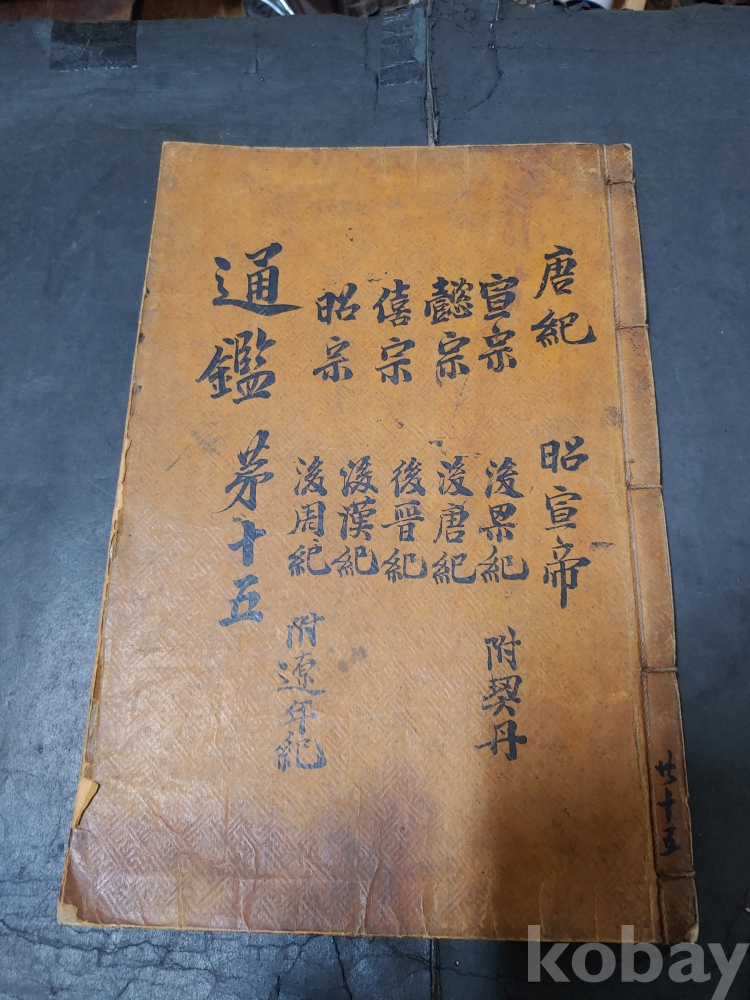 唐紀 昭宣帝
宣宗 後梁紀 附契丹
懿宗 後唐紀
僖宗 後晉紀
昭宗 後漢紀
後周紀 附遼年紀
通鑑 第十五
共十五
kobay